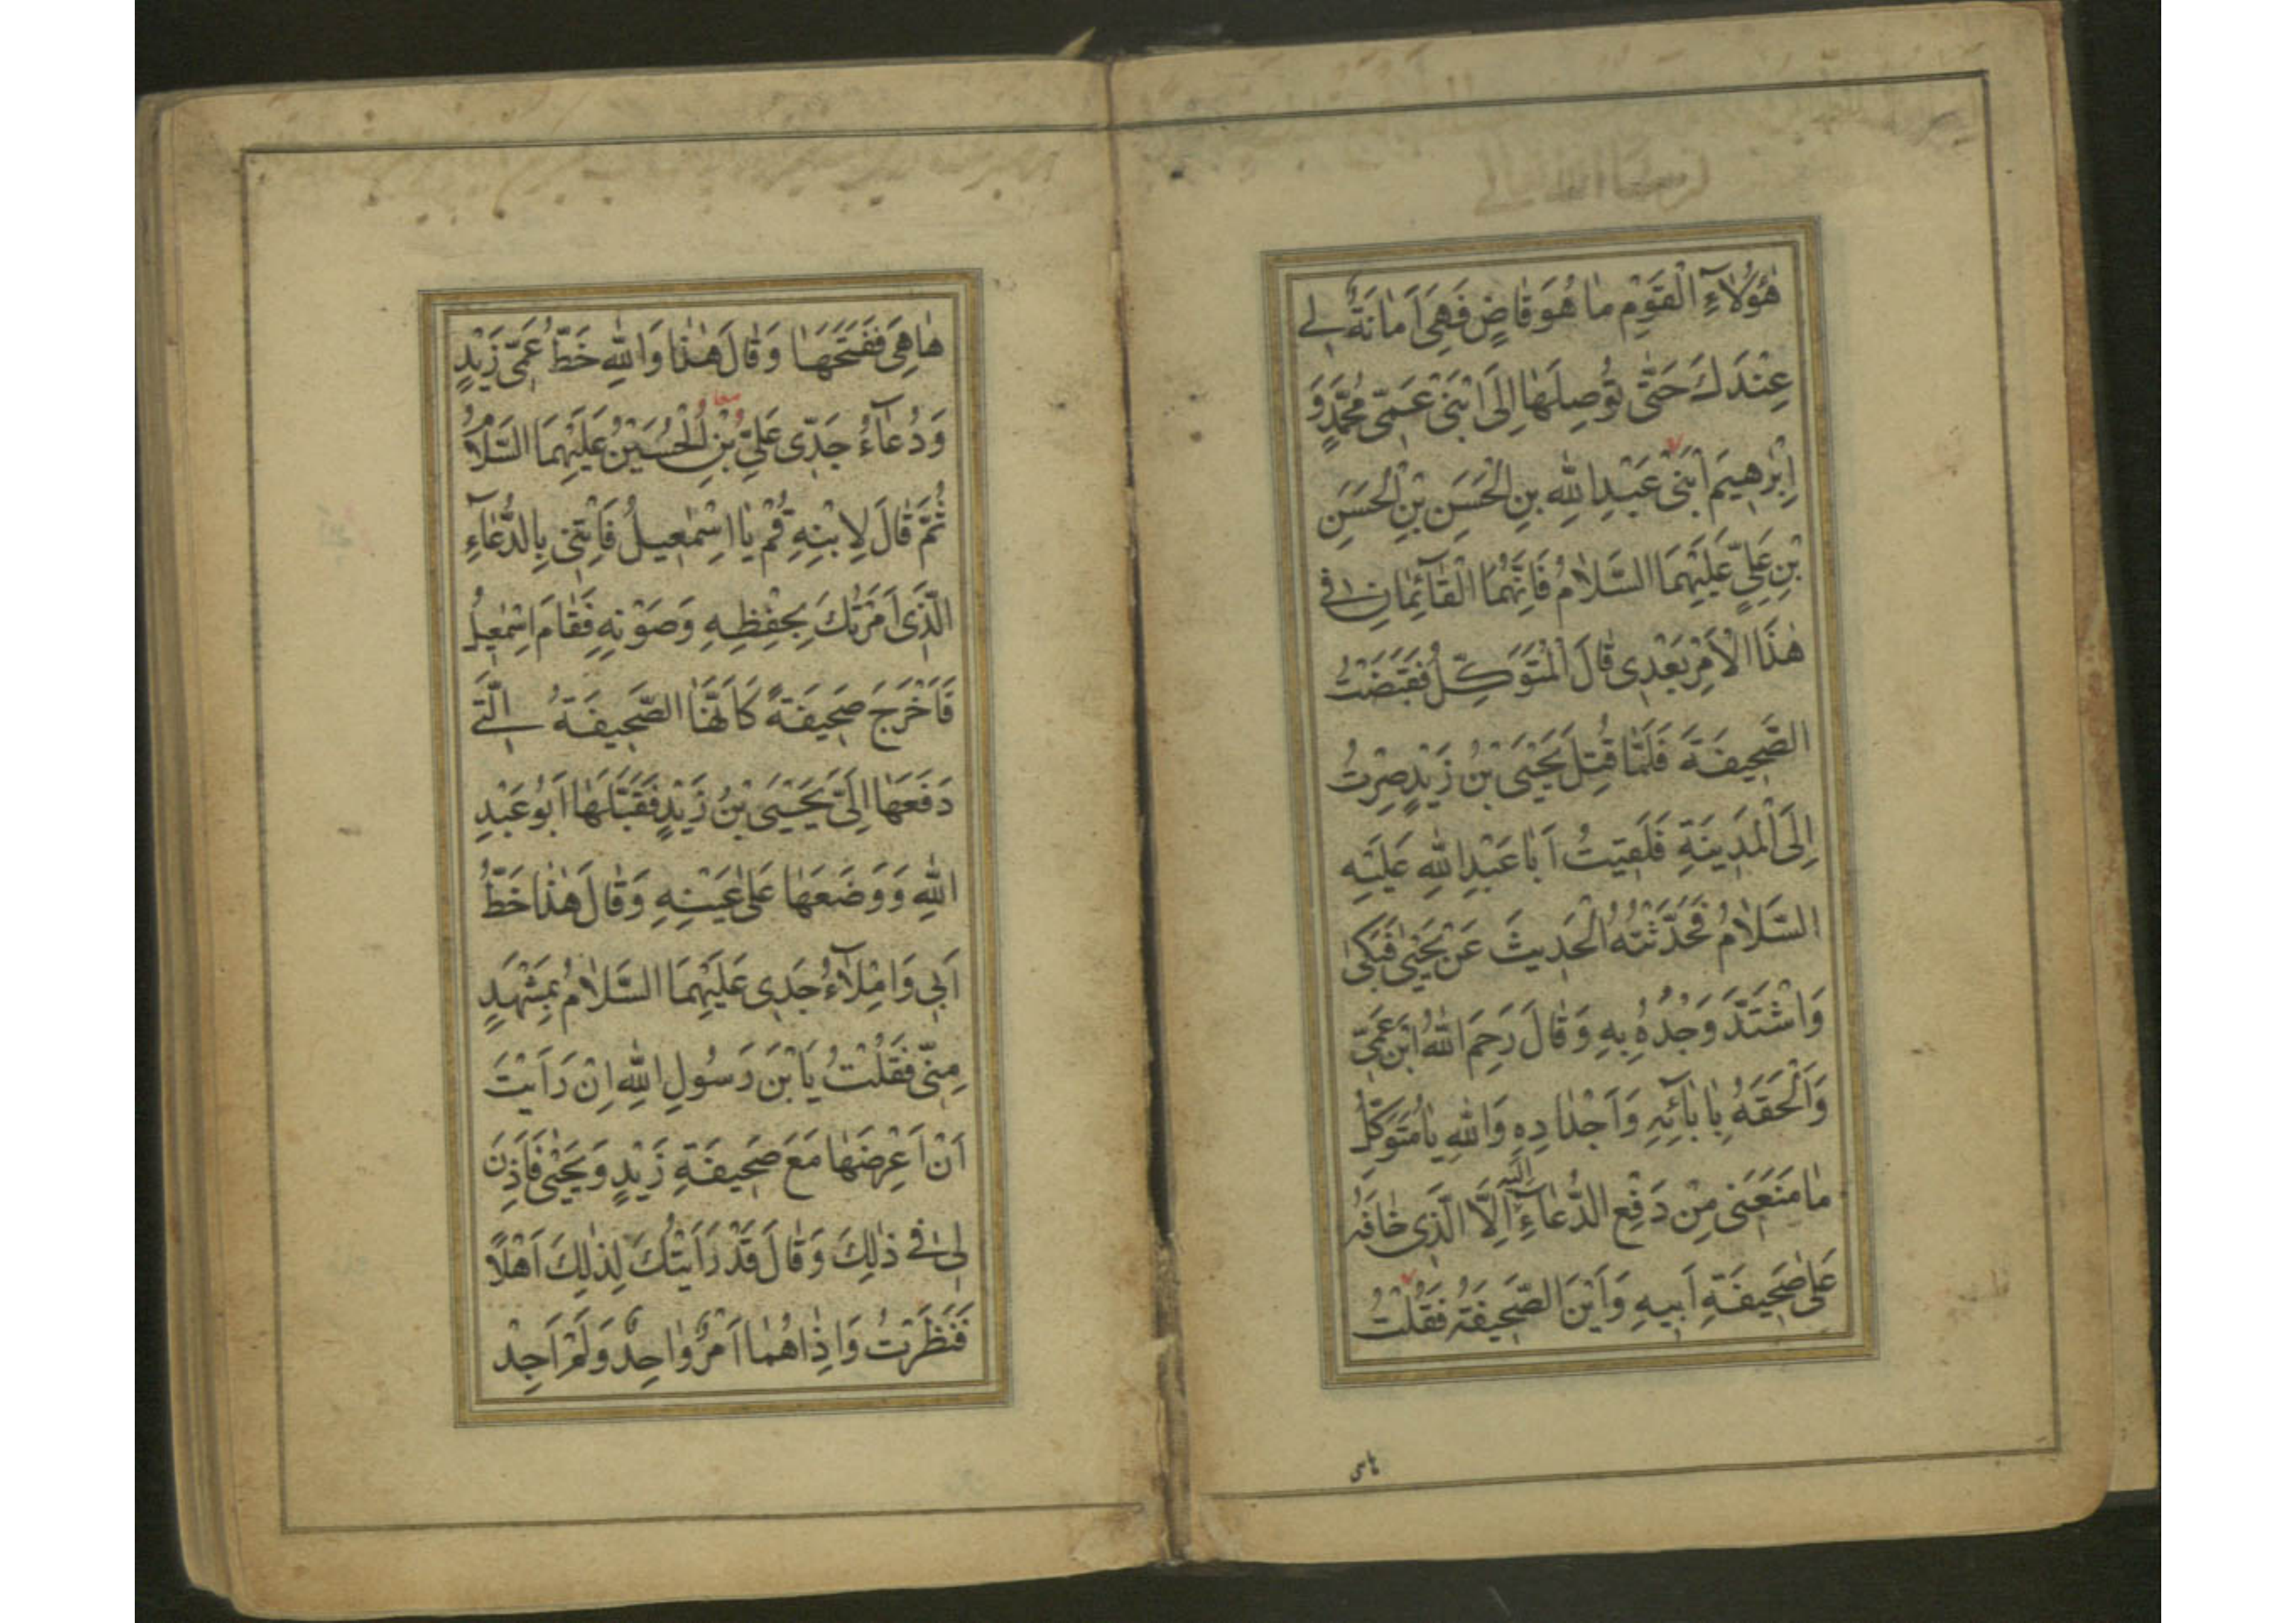 هٰؤُلَاءِ الْقَوْمِ مٰا هُوَ قٰاضٍ فَهِىَ اَمٰانَةٌ لِي
عِنْدَكَ حَتّٰى تُوصِلَهٰا اِلَى ابْنَىْ عَمّى مُحَمَّدٍ وَ
اِبْرٰهِيمَ ابْنَىْ عَبْدِ اللّٰهِ بْنِ الْحَسَنِ بْنِ الْحَسَنِ
بْنِ عَلِيٍّ عَلَيْهِمَا السَّلٰامُ فَاِنَّهُمَا الْقٰائِمٰانِ فى
هٰذَا الْاَمْرِ بَعْدِى قٰالَ الْمُتَوَكِّلُ فَقَبَضْتُ
الصَّحِيفَةَ فَلَمّٰا قُتِلَ يَحْيَى بْنُ زَيْدٍ صِرْتُ
اِلَى الْمَدِينَةِ فَلَقِيتُ اَبٰا عَبْدِ اللّٰهِ عَلَيْهِ
السَّلٰامُ فَحَدَّثْتُهُ الْحَدِيثَ عَنْ يَحْيٰى فَبَكٰى
وَاشْتَدَّ وَجْدُهُ بِهِ وَقٰالَ رَحِمَ اللّٰهُ ابْنَ عَمّى
وَاَلْحَقَهُ بِاٰبٰائِهِ وَاَجْدٰادِهِ وَاللّٰهِ يٰا مُتَوَكِّلُ
مٰا مَنَعَنى مِنْ دَفْعِ الدُّعٰاءِ اِلَيْهِ اِلَّا الَّذِى خٰافَهُ
عَلٰى صَحِيفَةِ اَبِيهِ وَاَيْنَ الصَّحِيفَةُ فَقُلْتُ
هٰا هِىَ فَفَتَحَهٰا وَقٰالَ هٰذٰا وَاللّٰهِ خَطُّ عَمّى زَيْدٍ
وَدُعٰاءُ جَدّى عَلِيِّ بْنِ الْحُسَيْنِ عَلَيْهِمَا السَّلٰامُ
ثُمَّ قٰالَ لِابْنِهِ قُمْ يٰا اِسْمٰعِيلُ فَاْتِنى بِالدُّعٰاءِ
الَّذِى اَمَرْتُكَ بِحِفْظِهِ وَصَوْنِهِ فَقٰامَ اِسْمٰعِيلُ
فَاَخْرَجَ صَحِيفَةً كَاَنَّهَا الصَّحِيفَةُ الَّتى
دَفَعَهٰا اِلَىَّ يَحْيَى بْنُ زَيْدٍ فَقَبَّلَهٰا اَبُو عَبْدِ
اللّٰهِ وَوَضَعَهٰا عَلٰى عَيْنِهِ وَقٰالَ هٰذٰا خَطُّ
اَبى وَاِمْلٰاءُ جَدِّى عَلَيْهِمَا السَّلٰامُ بِمَشْهَدٍ
مِنّى فَقُلْتُ يَا بْنَ رَسُولِ اللّٰهِ اِنْ رَاَيْتَ
اَنْ اَعْرِضَهٰا مَعَ صَحِيفَةِ زَيْدٍ وَيَحْيٰى فَاَذِنَ
لى فى ذٰلِكَ وَقٰالَ قَدْ رَاَيْتُكَ لِذٰلِكَ اَهْلًا
فَنَظَرْتُ وَاِذٰا هُمٰا اَمْرٌ وٰاحِدٌ وَلَمْ اَجِدْ